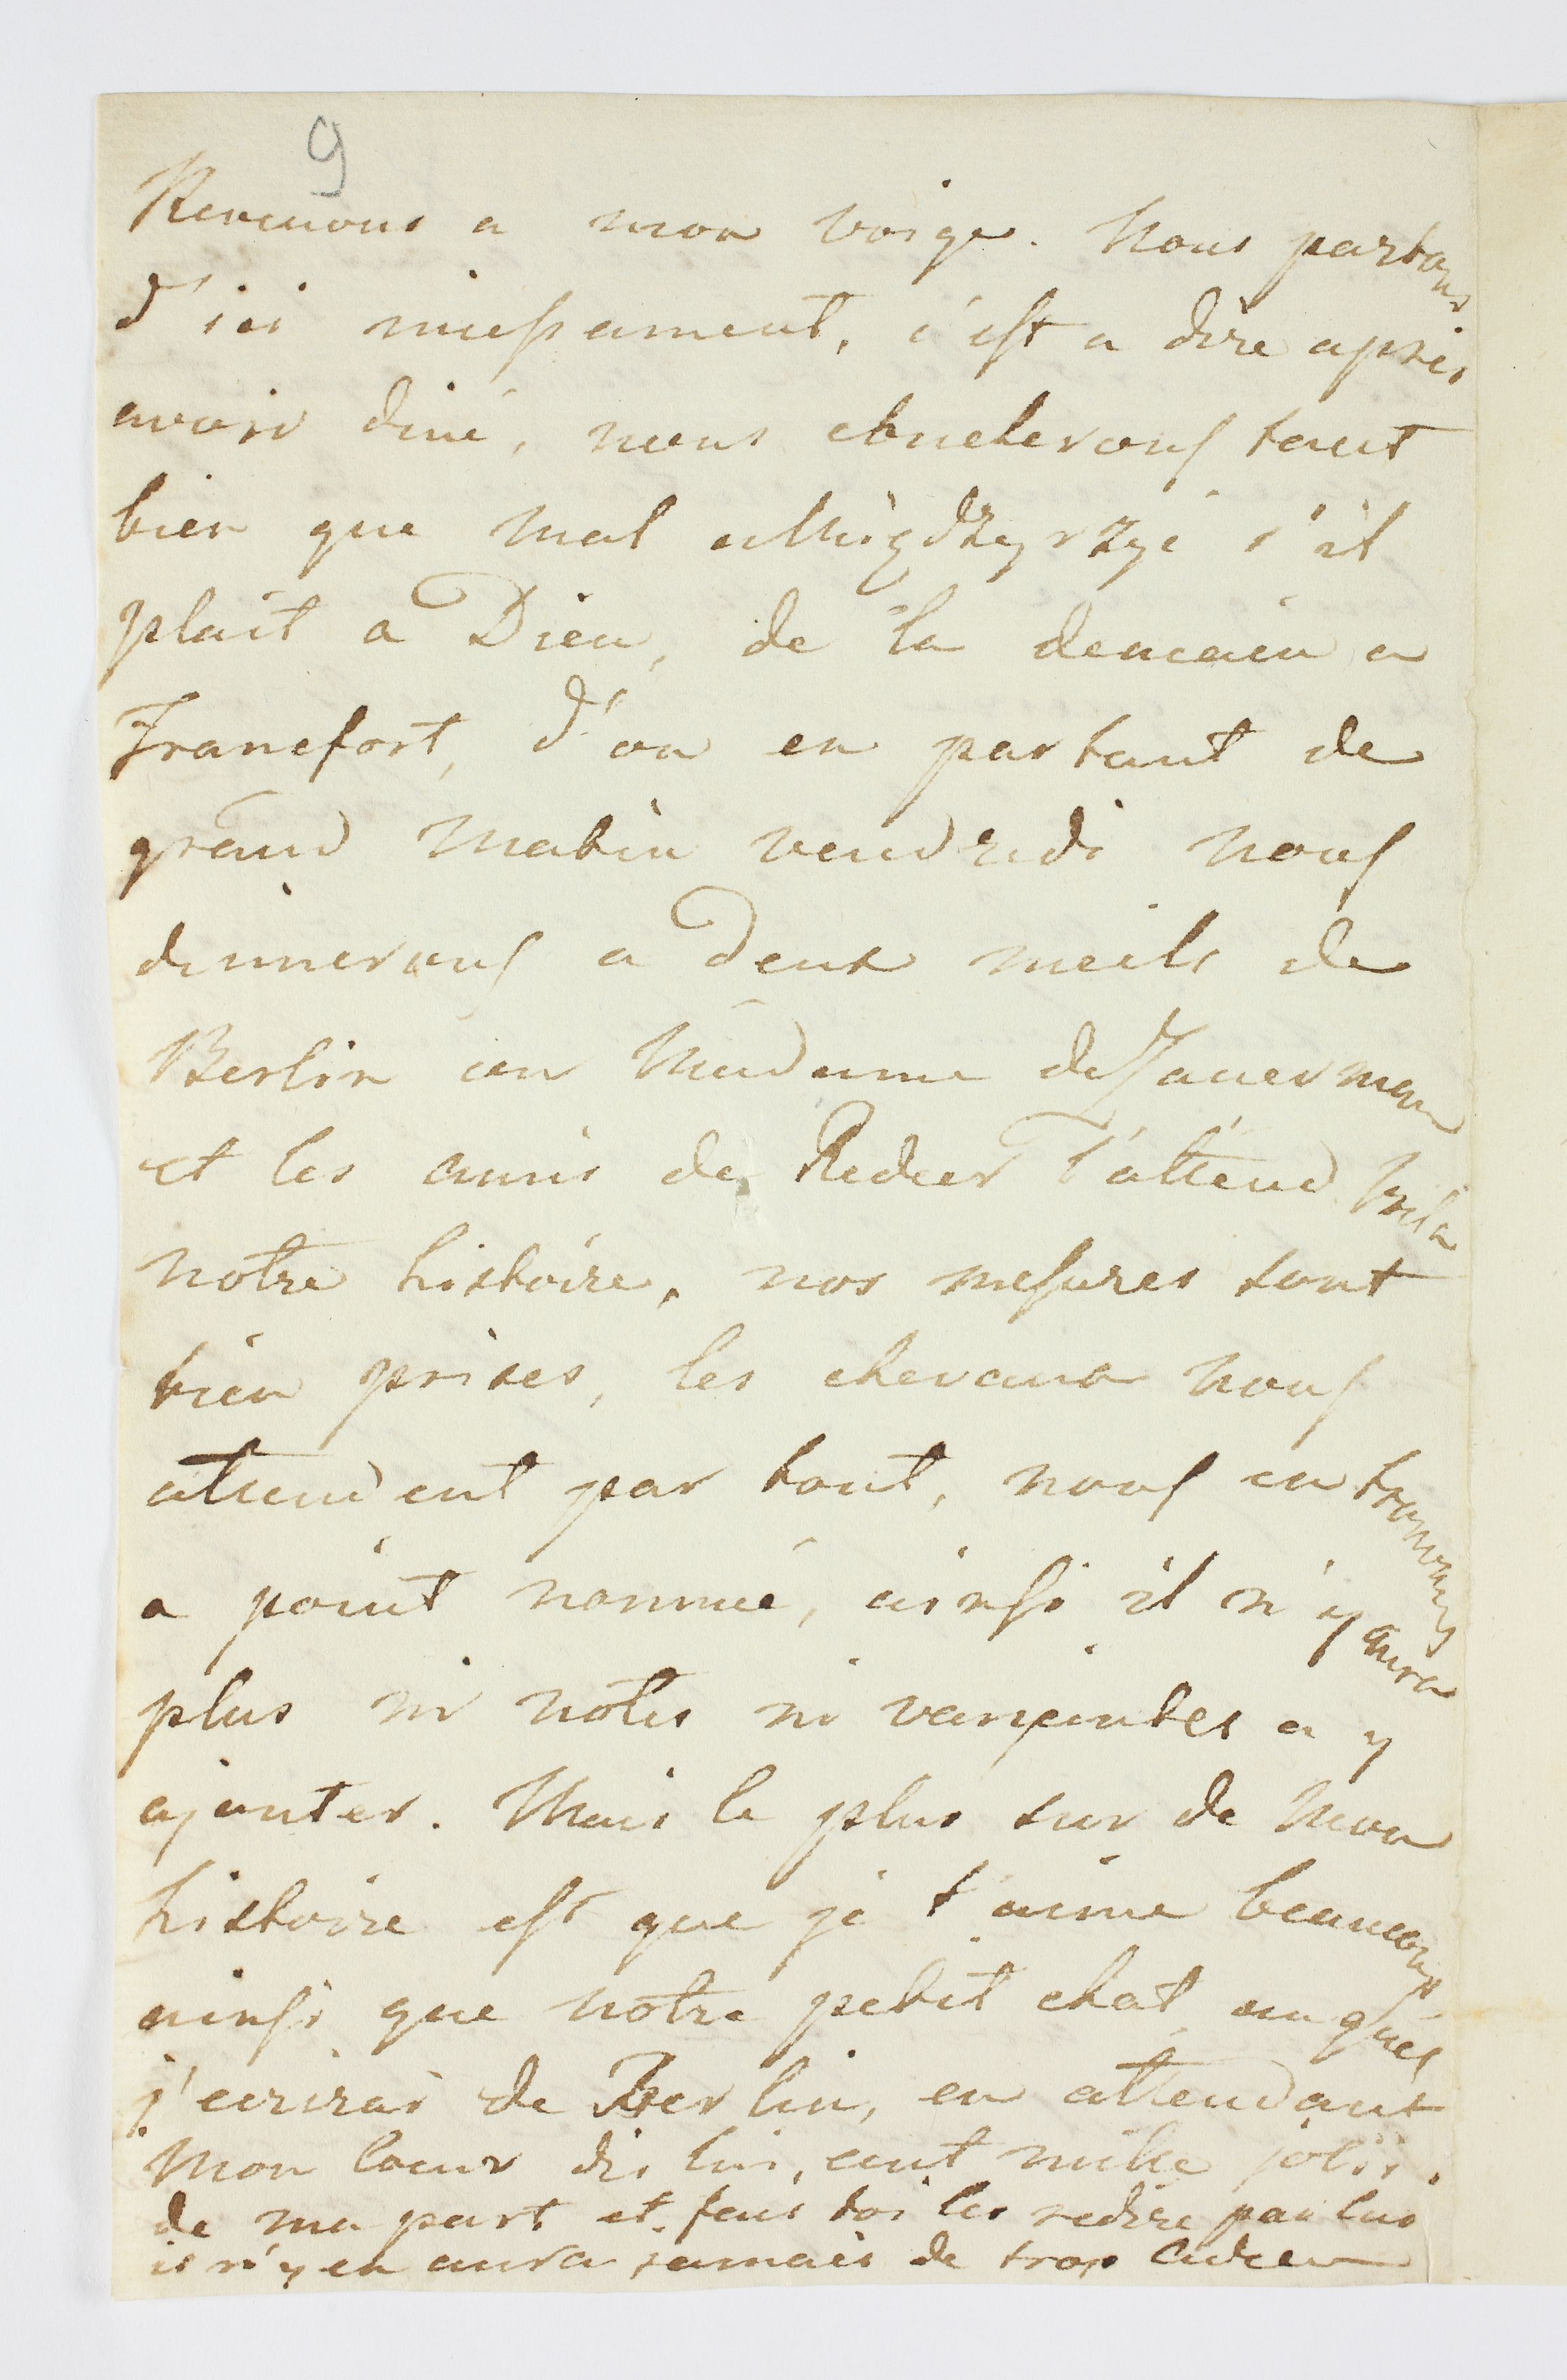 9
Revenons a mon voige. Nous partons
d'ici incessament, c'est a dire après
avoir diné, nous chucherons tant
bien que mal a Międzyrzyć s'il
plait a Dieu, de la demain a
Francfort, d'ou en partant de
grand matin vendredi nous
dinnerons a deux meils de
Berlin ou Madame de Zauerman
et les amis de Redeer t'attend voila
notre histoire, nos mesures sont
bien prises, les chevaux nous
attendent par tout, nous en trouvons
a point nommé, ainsi il n'y aura
plus ni notes ni variantes a y
ajouter. Mais le plus sur de mon
histoire est que je t'aime beaucoup
ainsi que notre petit chat au quel
j'ecrirai de Berlin, en attendant
mon coeur dis lui, cent mille jolis.
de ma part et fais toi les redire par lui
il n'y en aura jamais de trop adieu